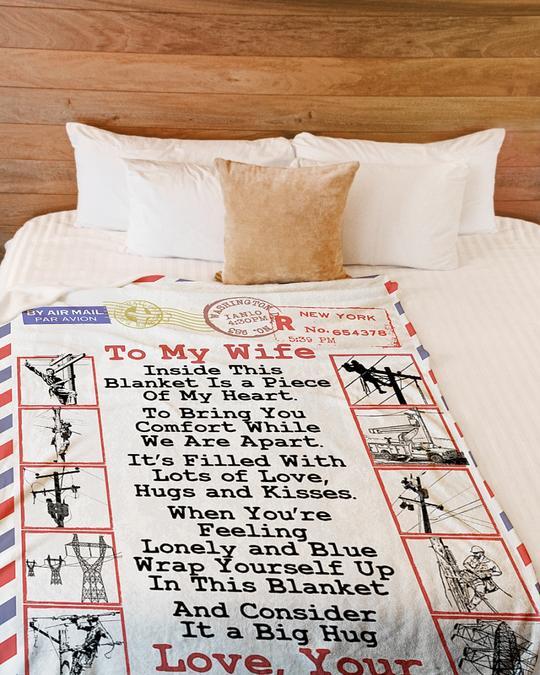 BY AIR MAIL
PAR AVION
WASHINGTON
JAN 10
4:30PM
NEW YORK
R No. 654378
5:39 PM
To My Wife
Inside This
Blanket Is a Piece
Of My Heart.
To Bring You
Comfort While
We Are Apart.
It's Filled With
Lots of Love,
Hugs and Kisses.
When You're
Feeling
Lonely and Blue
Wrap Yourself Up
In This Blanket
And Consider
It a Big Hug
Love, Your